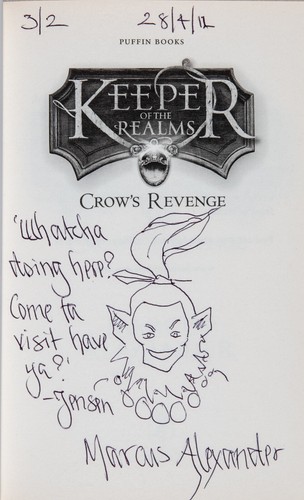 3/2 28/4/12
PUFFIN BOOKS
KEEPER
OF THE
REALMS
CROW'S REVENGE
'Whatcha
doing here?
Come ta
visit have
ya?'
-Jensen
Marcus Alexander